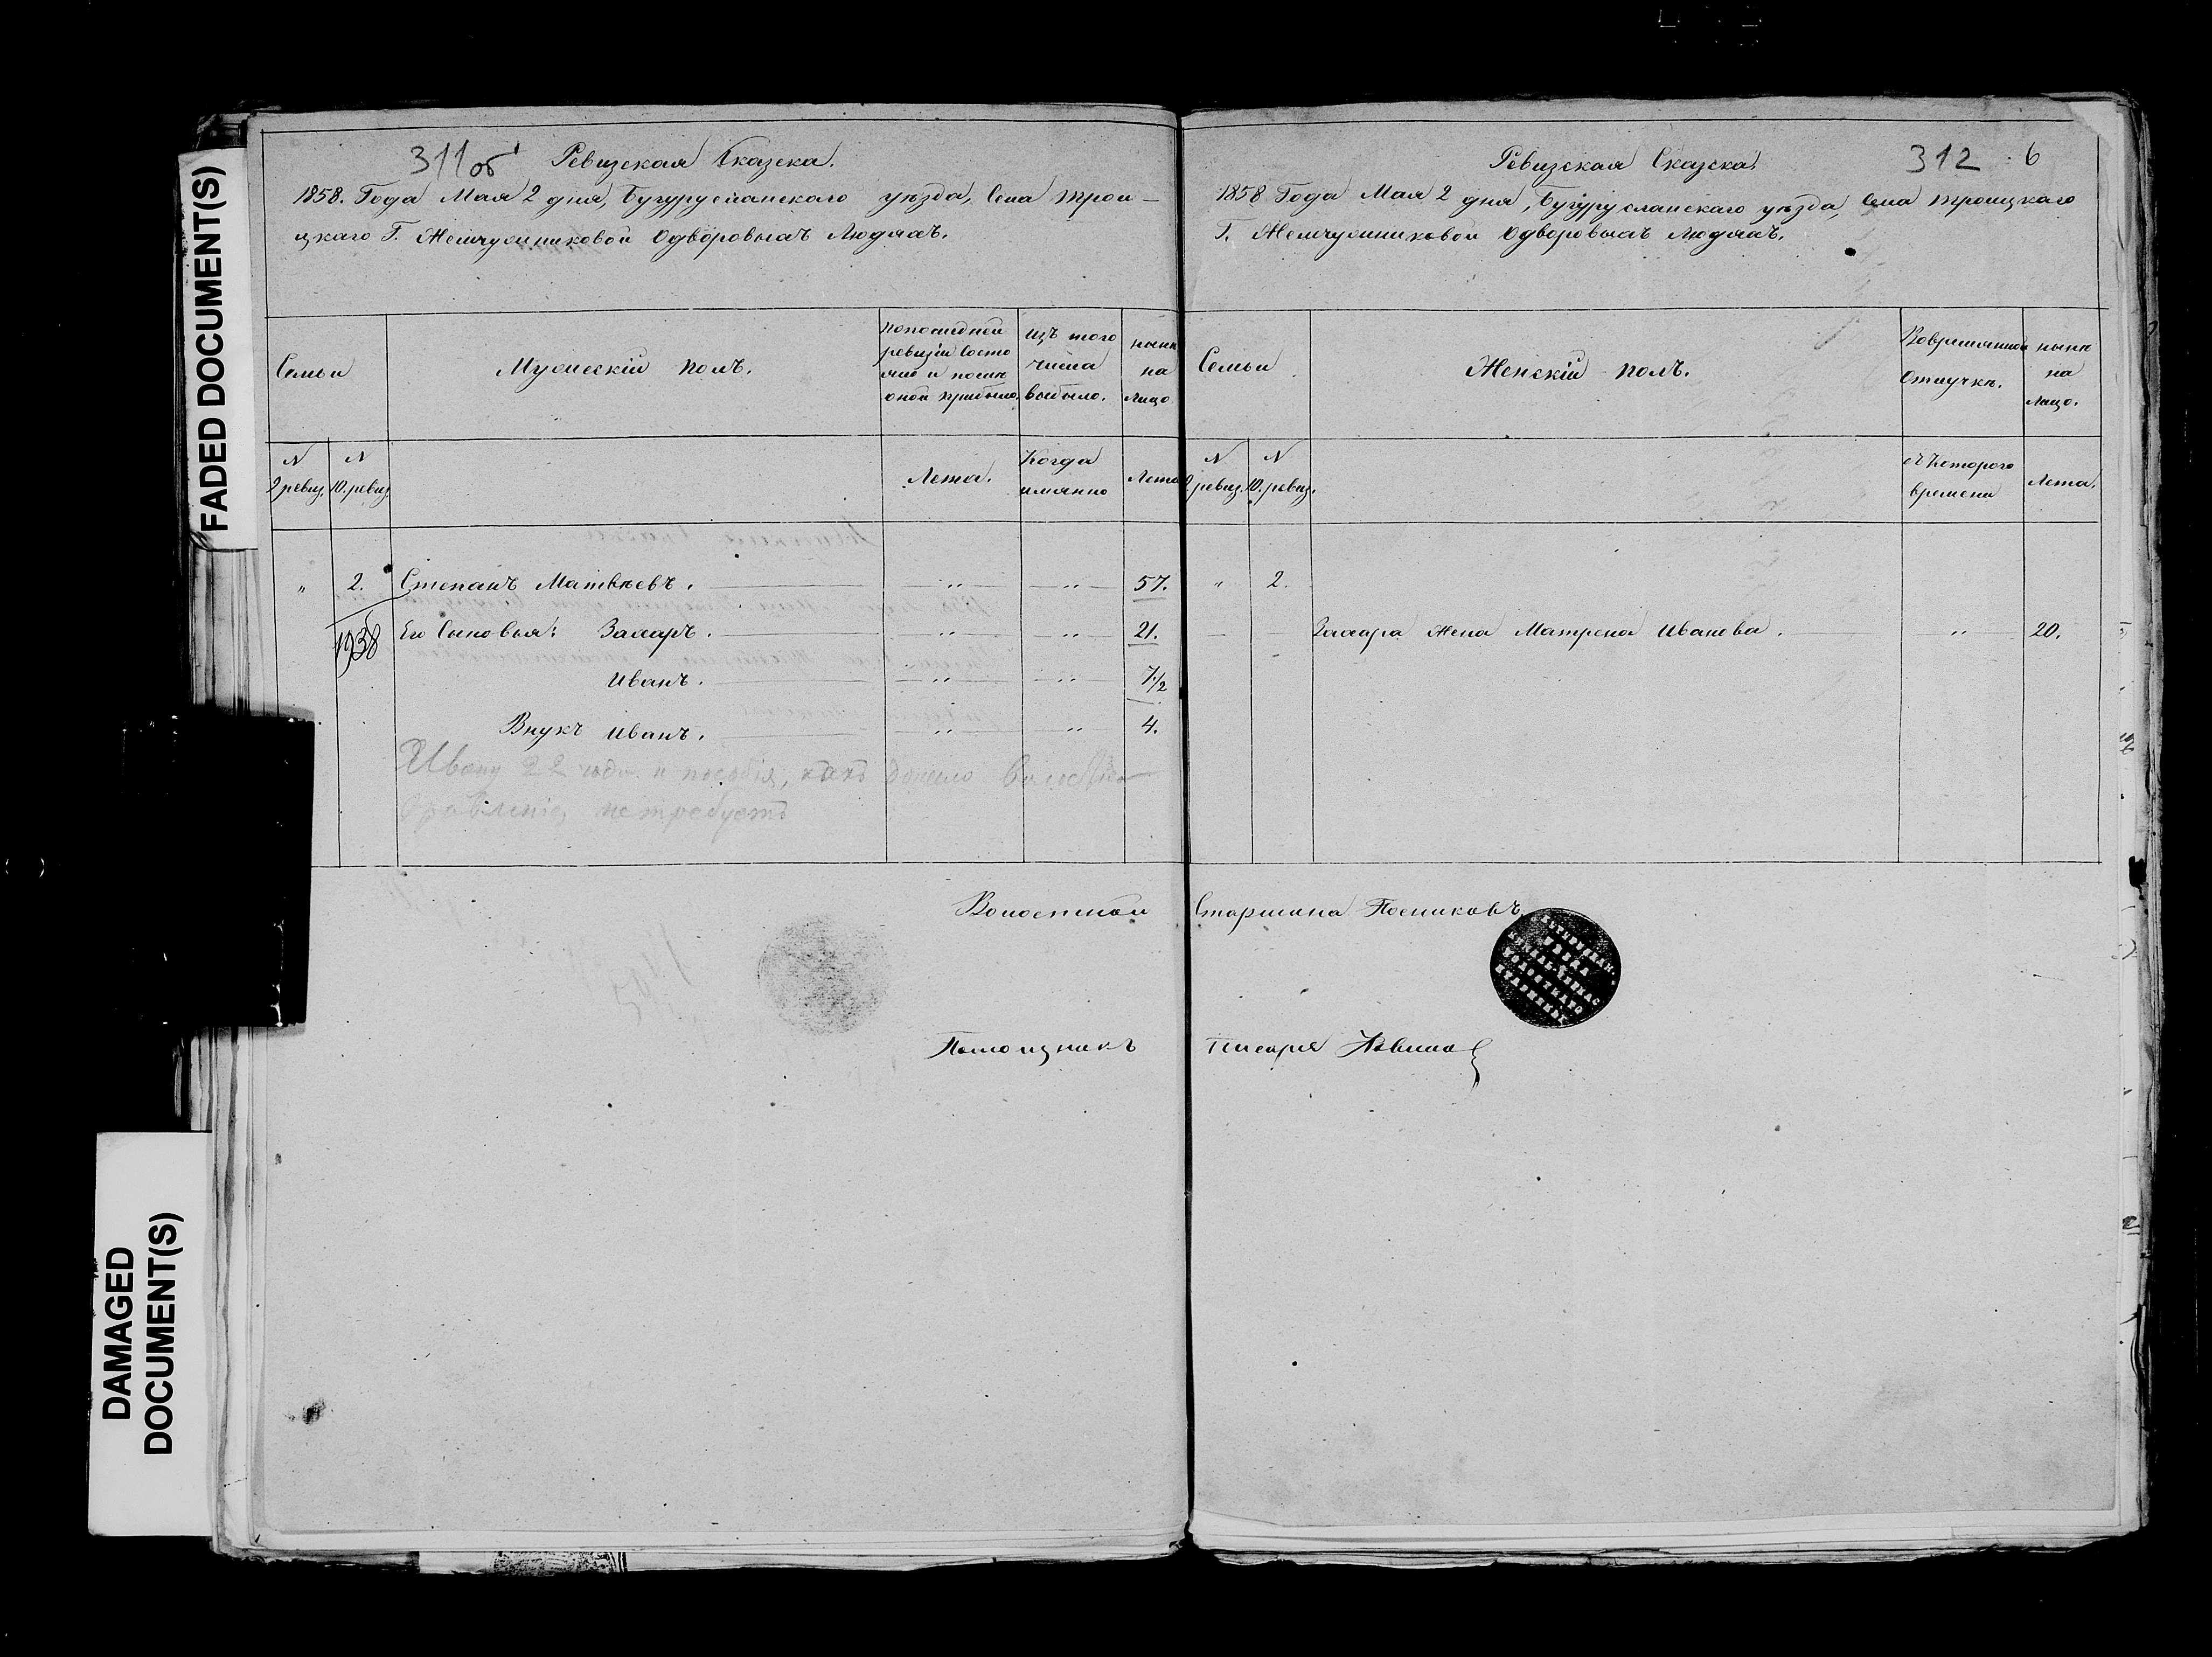 FADED DOCUMENT(S)
DAMAGED
DOCUMENT(S)
311об
Ревизская Сказска.
1858. Года Мая 2 дня, Бугурусланскаго уѣзда, Села Трои-
цкаго Г. Жемчужниковой Одворовыхъ людяхъ.
Семьи
Мужескій полъ.
попоследней
ревизіи состо
яло и после
оной прибыло.
изъ того
числа
выбыло.
нынѣ
на
лицо
N
9 ревиз.
N
10. ревиз
Лета.
Когда
имянно
Лета
" 2. Степанъ Матвѣевъ. " " 57.
1938
Его Сыновья: Захаръ. " " 21.
Иванъ. " " 7 1/2
Внукъ Иванъ. " " 4.
Ивану 22 года и пособія, какъ донело Волостное
Правленіе, не требуетъ
312 6
Ревизская Сказска.
1858 Года Мая 2 дня, Бугурусланскаго уѣзда, Села Троицкаго
Г. Жемчужниковой Одворовыхъ людяхъ.
Семьи
Женскій полъ.
Вовременной
Отлучкѣ.
нынѣ
на
лицо.
N
9 ревиз.
N
10. ревиз.
съ Котораго
времени
Лета.
" 2.
Захара Жена Матрена Иванова. " 20.
Волостной Старшина Посниковъ
Помощникъ Писаря